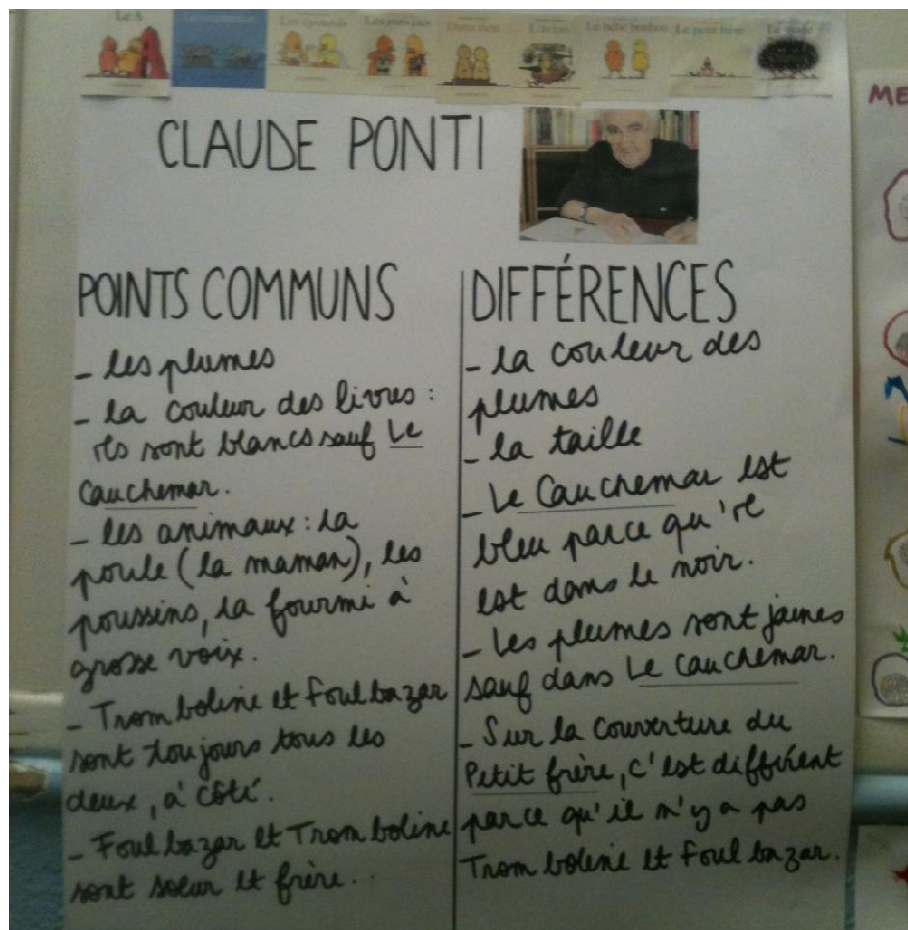 Le A
Le cauchemar
Les épinards
Les masques
Dans rien
L'avion
Le bébé bonbon
Le petit frère
CLAUDE PONTI
ME
POINTS COMMUNS
- les plumes
- la couleur des livres :
ils sont blancs sauf Le
Cauchemar.
- les animaux : la
poule (la maman), les
poussins, la fourmi à
grosse voix.
- Tromboline et Foulbazar
sont toujours tous les
deux, à côté.
- Foulbazar et Tromboline
sont soeur et frère..
DIFFÉRENCES
- la couleur des
plumes
- la taille
- Le Cauchemar est
bleu parce qu'il
est dans le noir.
- Les plumes sont jaunes
sauf dans Le cauchemar.
- Sur la couverture du
Petit frère, c'est différent
parce qu'il n'y a pas
Tromboline et Foulbazar.